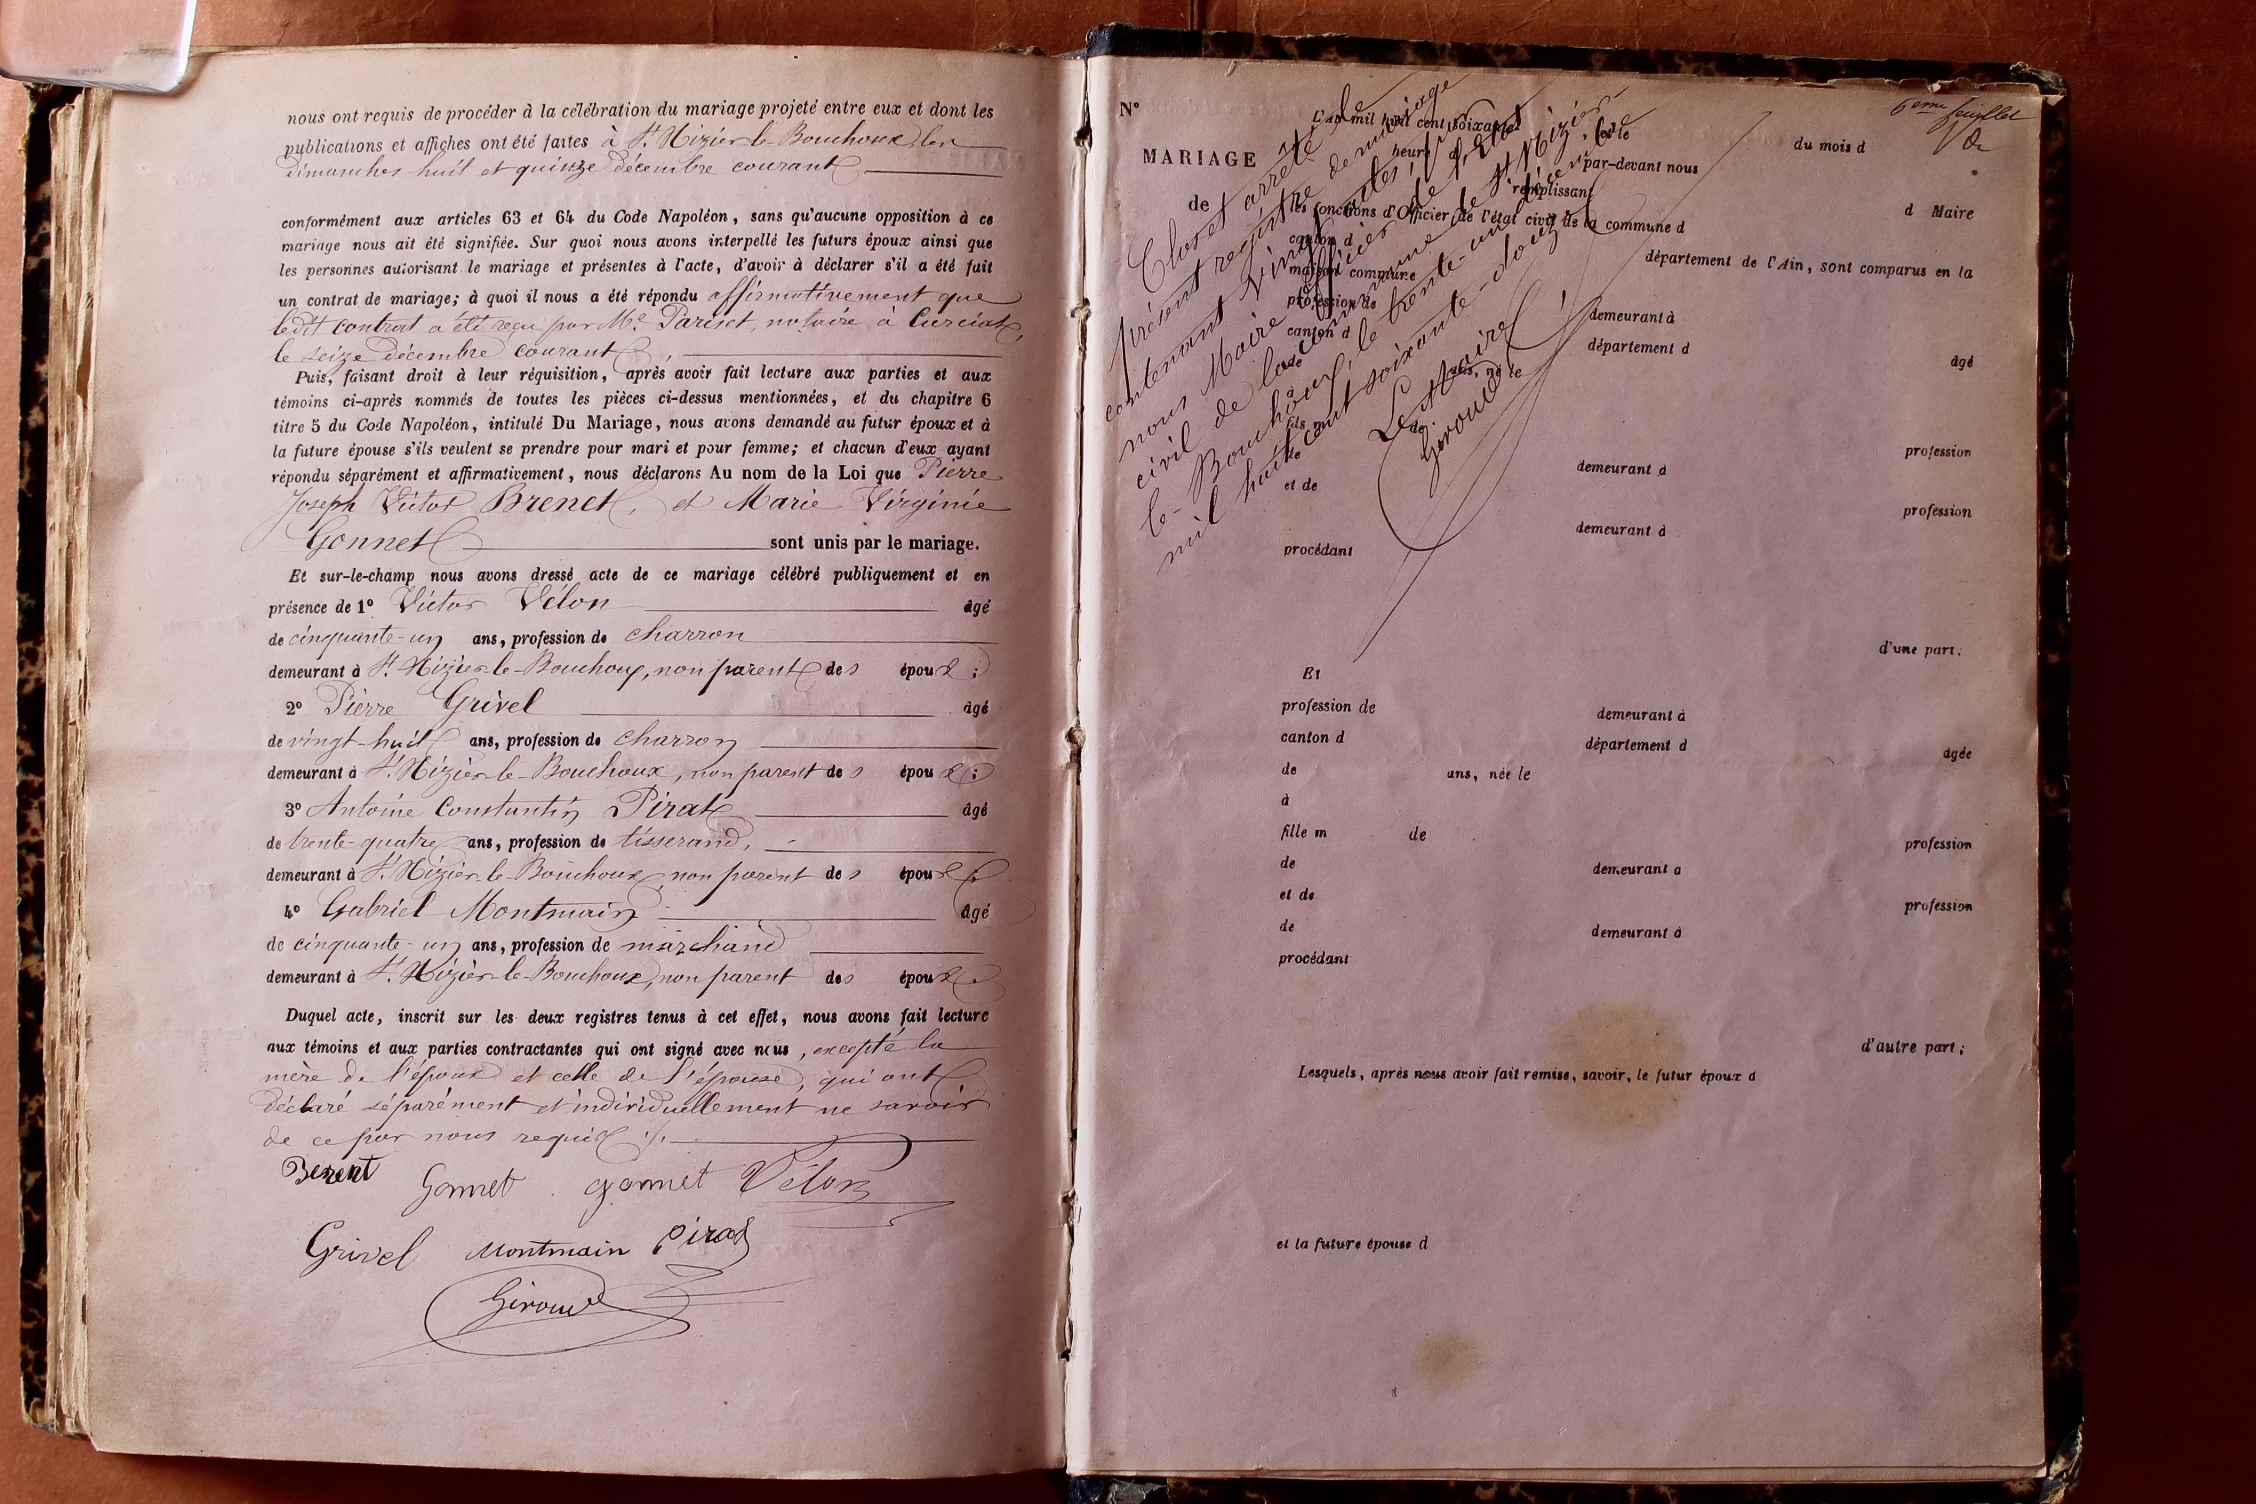 nous ont requis de procéder à la célébration du mariage projeté entre eux et dont les
publications et affiches ont été faites à St. Nizier-le-Bouchoux les
dimanches huit et quinze décembre courant
conformément aux articles 63 et 64 du Code Napoléon, sans qu'aucune opposition à ce
mariage nous ait été signifiée. Sur quoi nous avons interpellé les futurs époux ainsi que
les personnes autorisant le mariage et présentes à l'acte, d'avoir à déclarer s'il a été fait
un contrat de mariage; à quoi il nous a été répondu affirmativement que
ledit contrat a été reçu par Me. Pariset, notaire à Curciat,
le seize décembre courant,
Puis, faisant droit à leur réquisition, après avoir fait lecture aux parties et aux
témoins ci-après nommés de toutes les pièces ci-dessus mentionnées, et du chapitre 6
titre 5 du Code Napoléon, intitulé Du Mariage, nous avons demandé au futur époux et à
la future épouse s'ils veulent se prendre pour mari et pour femme; et chacun d'eux ayant
répondu séparément et affirmativement, nous déclarons Au nom de la Loi que Pierre
Joseph Victor Brenet, et Marie Virginie
Gonnet sont unis par le mariage.
Et sur-le-champ nous avons dressé acte de ce mariage célébré publiquement et en
présence de 1° Victor Vélon âgé
de cinquante-un ans, profession de charron
demeurant à St. Nizier-le-Bouchoux, non parent des époux;
2° Pierre Grivel âgé
de vingt-huit ans, profession de charron
demeurant à St. Nizier-le-Bouchoux, non parent des époux;
3° Antoine Constantin Pirat âgé
de trente-quatre ans, profession de tisserand,
demeurant à St. Nizier-le-Bouchoux, non parent des époux
4° Gabriel Montmain âgé
de cinquante-un ans, profession de marchand
demeurant à St. Nizier-le-Bouchoux, non parent des époux
Duquel acte, inscrit sur les deux registres tenus à cet effet, nous avons fait lecture
aux témoins et aux parties contractantes qui ont signé avec nous, excepté la
mère de l'époux et celle de l'épouse, qui ont
déclaré séparément et individuellement ne savoir
de ce par nous requis ./.
Gonnet gonnet Vélon
Grivel Montmain Pirat
Giroud
6eme feuillet
N°
MARIAGE
de
L'an mil huit cent soixante
du mois d
heure
par-devant nous
remplissant
d Maire
les fonctions d'Officier de l'état civil de la commune d
canton d
département de l'Ain, sont comparus en la
maison commune
profession de
demeurant à
canton d
département d
âgé
de
ans, né le
à
fils m
de
profession
de
demeurant à
et de
profession
demeurant à
procédant
d'une part;
Clos et arrêté le
présent registre de mariage
contenant vingt actes, par
nous Maire officier de l'état
civil de la commune de St Nizier
le-Bouchoux, le trente-un décembre
mil huit cent soixante-douze
Le Maire
Giroud
Et
profession de
demeurant à
canton d
département d
âgée
de
ans, née le
à
fille m
de
profession
de
demeurant à
et de
profession
de
demeurant à
procédant
d'autre part;
Lesquels, après nous avoir fait remise, savoir, le futur époux d
et la future épouse d